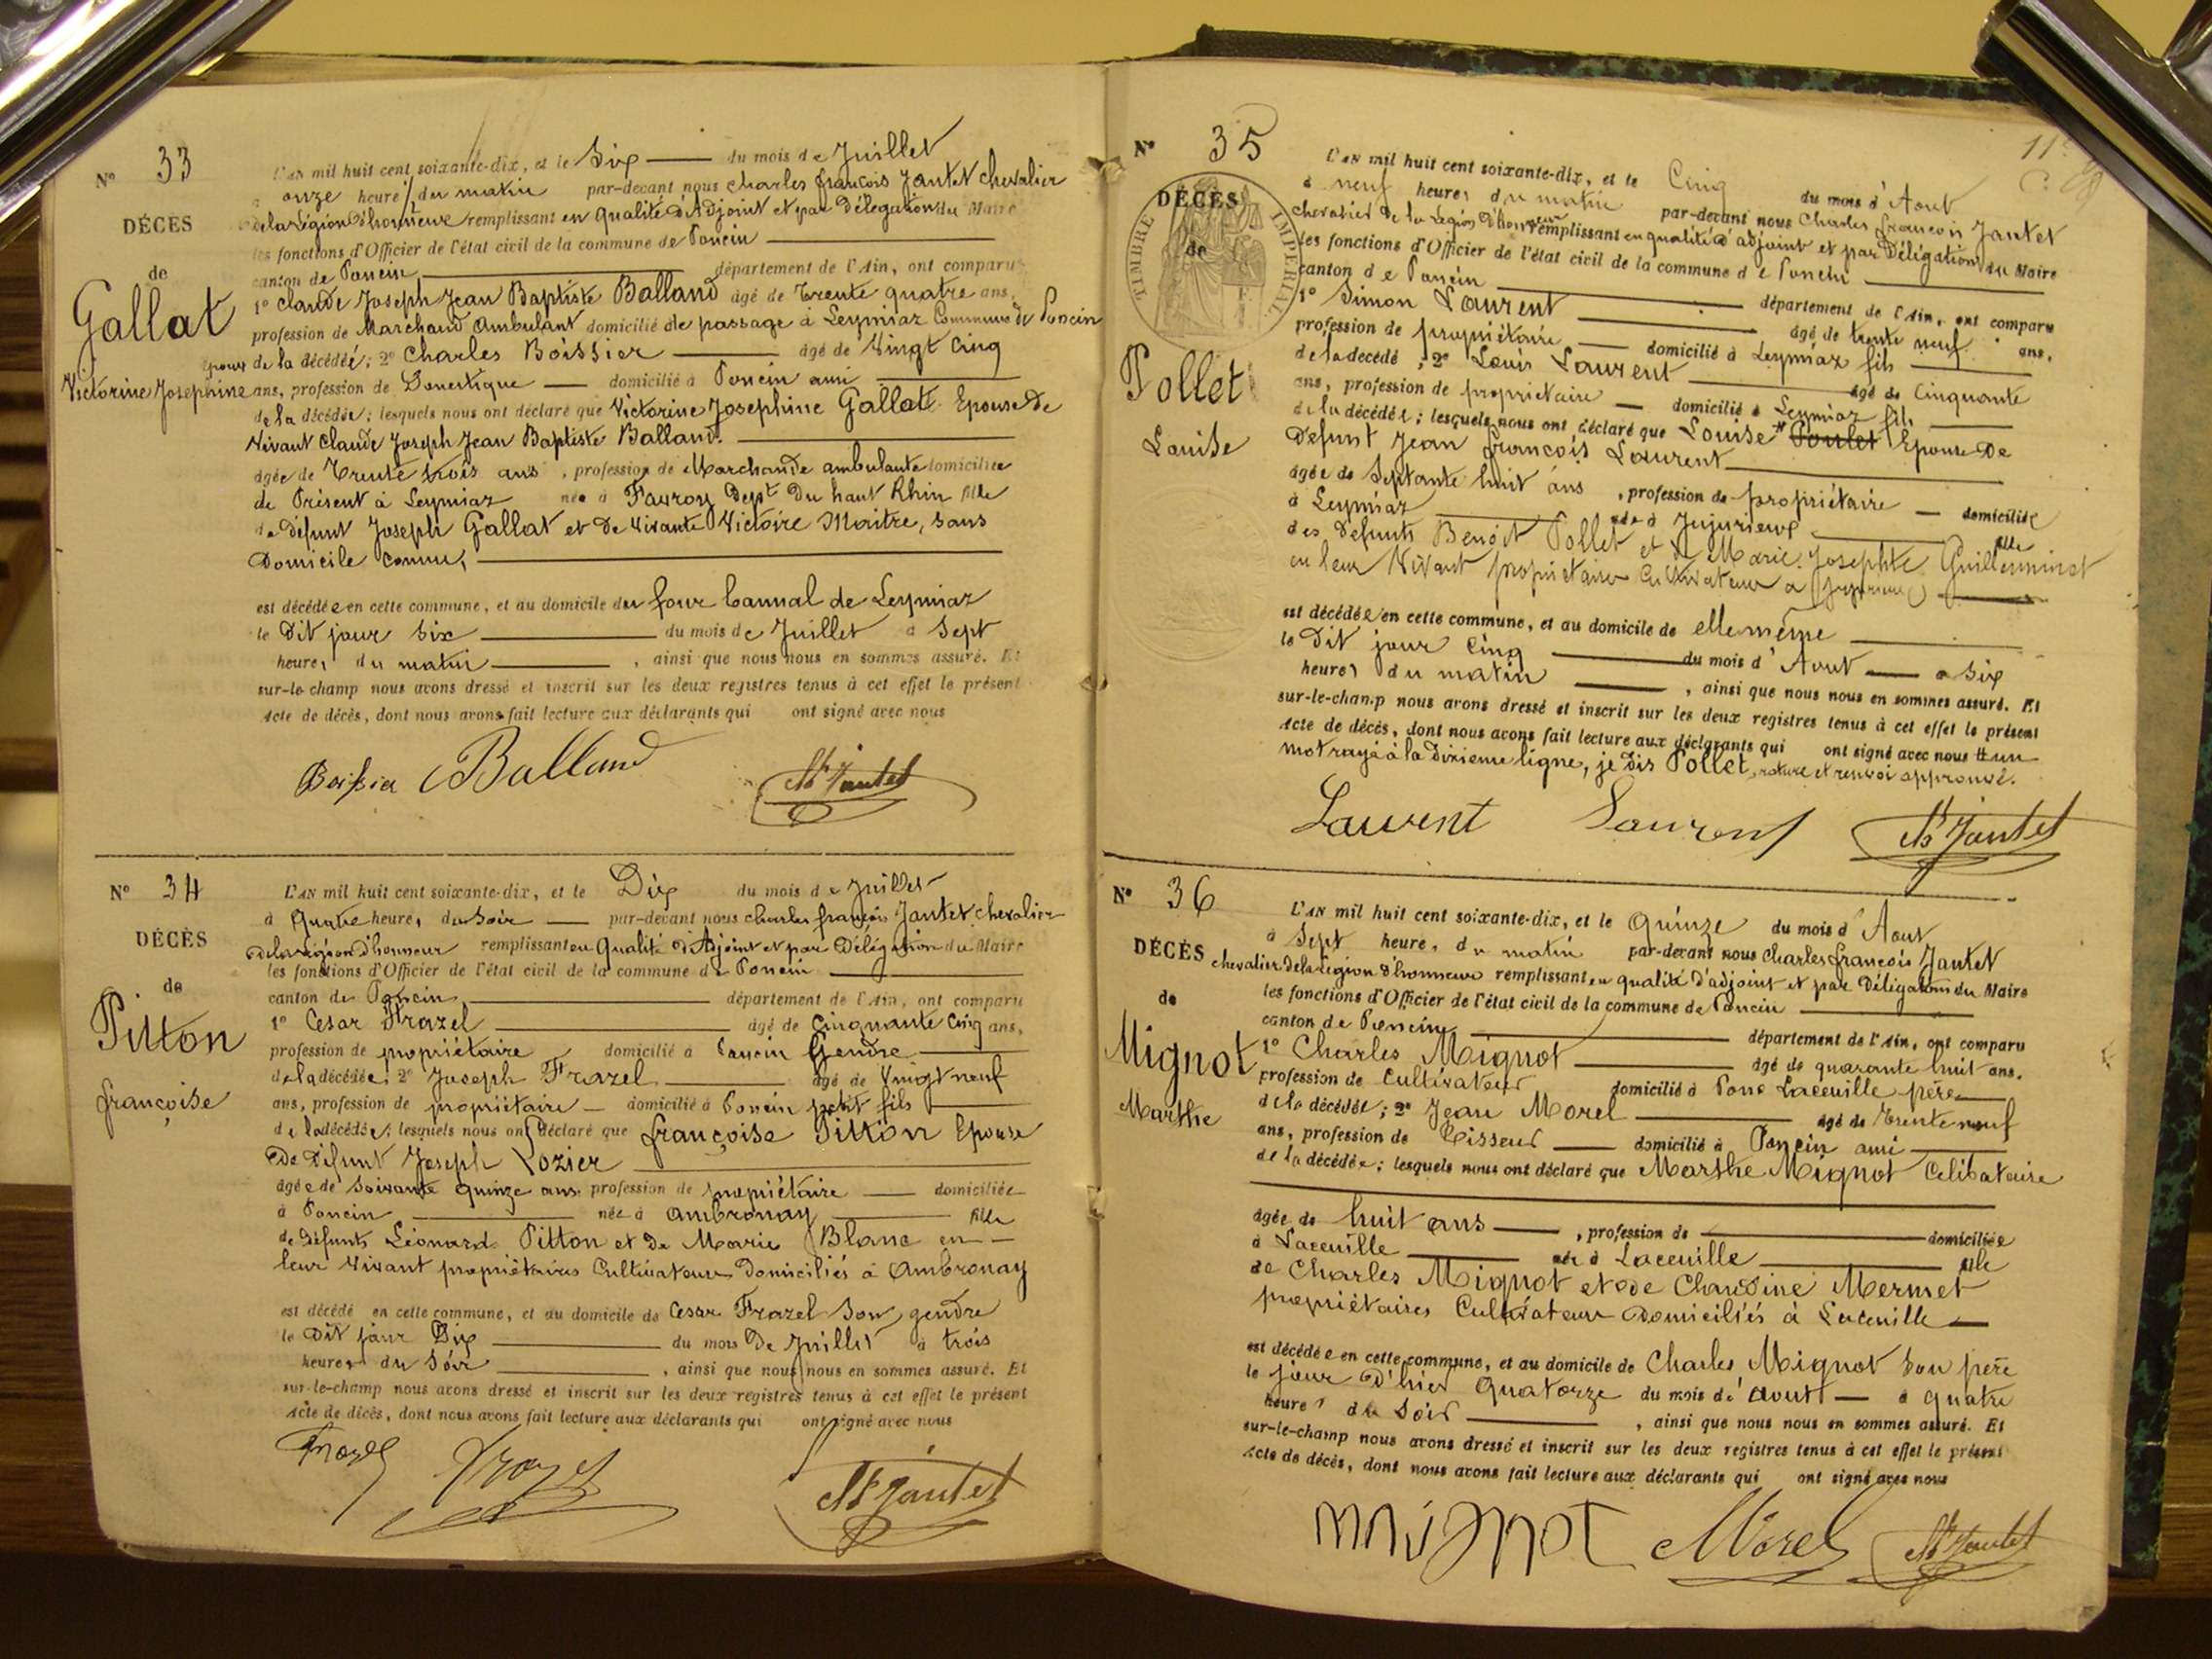 Nº 33
DÉCÈS
de
Gallat
Victorine Josephine
L'AN mil huit cent soixante-dix, et le Six du mois de Juillet
à onze heures du matin par-devant nous Charles françois Jantet Chevalier
de la Légion d'honneur remplissant en qualité d'Adjoint et par Délégation du Maire
les fonctions d'Officier de l'état civil de la commune de Poncin
canton de Poncin département de l'Ain, ont comparu
1º Claude Joseph Jean Baptiste Balland âgé de Trente quatre ans,
profession de Marchand Ambulant domicilié de passage à Leymiaz Commune de Poncin
époux de la décédée; 2º Charles Boissier âgé de Vingt Cinq
ans, profession de Domestique domicilié à Poncin ami
de la décédée; lesquels nous ont déclaré que Victorine Josephine Gallat Epouse de
Vivant Claude Joseph Jean Baptiste Balland
âgée de Trente trois ans, profession de Marchande ambulante domiciliée
de Présent à Leymiaz née à Favroy Dept Du haut Rhin fille
de défunt Joseph Gallat et de Vivante Victoire Maitre, sans
Domicile connu,
est décédée en cette commune, et au domicile du four bannal de Leymiaz
le Dit jour Six du mois de Juillet à Sept
heures du matin, ainsi que nous nous en sommes assuré. Et
sur-le-champ nous avons dressé et inscrit sur les deux registres tenus à cet effet le présent
Acte de décès, dont nous avons fait lecture aux déclarants qui ont signé avec nous
Boissier Balland Ch Jantet
Nº 34
DÉCÈS
de
Pitton
françoise
L'AN mil huit cent soixante-dix, et le Dix du mois de Juillet
à Quatre heures du Soir par-devant nous Charles françois Jantet Chevalier
de la Légion d'honneur remplissant en Qualité d'Adjoint et par Délégation du Maire
les fonctions d'Officier de l'état civil de la commune de Poncin
canton de Poncin, département de l'Ain, ont comparu
1º Cesar Frazel âgé de Cinquante Cinq ans,
profession de propriétaire domicilié à Poncin Gendre
de la décédée; 2º Joseph Frazel âgé de Vingt neuf
ans, profession de propriétaire domicilié à Poncin petit fils
de la décédée; lesquels nous ont déclaré que françoise Pitton Epouse
De Défunt Joseph Lozier
âgée de Soixante quinze ans, profession de propriétaire domiciliée
à Poncin née à Ambronay fille
de Défunts Léonard Pitton et de Marie Blanc en
leur Vivant propriétaires Cultivateurs Domiciliés à Ambronay
est décédé en cette commune, et au domicile de Cesar Frazel Son gendre
le Dit jour Dix du mois De Juillet à trois
heures du Soir, ainsi que nous nous en sommes assuré. Et
sur-le-champ nous avons dressé et inscrit sur les deux registres tenus à cet effet le présent
Acte de décès, dont nous avons fait lecture aux déclarants qui ont signé avec nous
Frazel Frazel Ch Jantet
Nº 35
TIMBRE IMPÉRIAL
DÉCÈS
de
Pollet
Louise
L'AN mil huit cent soixante-dix, et le Cinq du mois d'Aout
à neuf heures du matin par-devant nous Charles françois Jantet
chevalier de la Légion D'honneur remplissant en qualité d'adjoint et par Délégation du Maire
les fonctions d'Officier de l'état civil de la commune de Poncin
canton de Poncin département de l'Ain, ont comparu
1º Simon Laurent âgé de trente neuf ans,
profession de propriétaire domicilié à Leymiaz fils
de la decédé; 2º Louis Laurent âgé de Cinquante
ans, profession de propriétaire domicilié à Leymiaz fils
de la décédée; lesquels nous ont déclaré que Louise # Poulet Epouse De
Defunt Jean françois Laurent
âgée de Septante huit ans, profession de propriétaire domiciliée
à Leymiaz née à Jujurieux fille
des Defunts Benoit Pollet et de Marie Josephte Guilleminet
en leur Vivant propriétaires Cultivateurs à Jujurieux
est décédée en cette commune, et au domicile de elle même
le Dit jour Cinq du mois d'Aout à Six
heures du matin, ainsi que nous nous en sommes assuré. Et
sur-le-champ nous avons dressé et inscrit sur les deux registres tenus à cet effet le présent
Acte de décès, dont nous avons fait lecture aux déclarants qui ont signé avec nous # un
mot rayé à la Dixieme ligne, je dis Pollet, rature et renvoi approuvé.
Laurent Laurent Ch Jantet
Nº 36
DÉCÈS
de
Mignot
Marthe
L'AN mil huit cent soixante-dix, et le Quinze du mois d'Aout
à Sept heures du matin par-devant nous Charles françois Jantet
chevalier de la Légion d'honneur remplissant en qualité d'adjoint et par Délégation du Maire
les fonctions d'Officier de l'état civil de la commune de Poncin
canton de Poncin département de l'Ain, ont comparu
1º Charles Mignot âgé de quarante huit ans,
profession de Cultivateur domicilié à Laceuille père
de la décédée; 2º Jean Morel âgé de Trente neuf
ans, profession de Tisseur domicilié à Poncin ami
de la décédée; lesquels nous ont déclaré que Marthe Mignot Célibataire
âgée de huit ans, profession de domiciliée
à Laceuille née à Laceuille fille
de Charles Mignot et de Claudine Mermet
propriétaires Cultivateurs Domiciliés à Laceuille
est décédée en cette commune, et au domicile de Charles Mignot Son père
le jour D'hier Quatorze du mois d'aout à quatre
heures du Soir, ainsi que nous nous en sommes assuré. Et
sur-le-champ nous avons dressé et inscrit sur les deux registres tenus à cet effet le présent
Acte de décès, dont nous avons fait lecture aux déclarants qui ont signé avec nous
Mignot Morel Ch Jantet